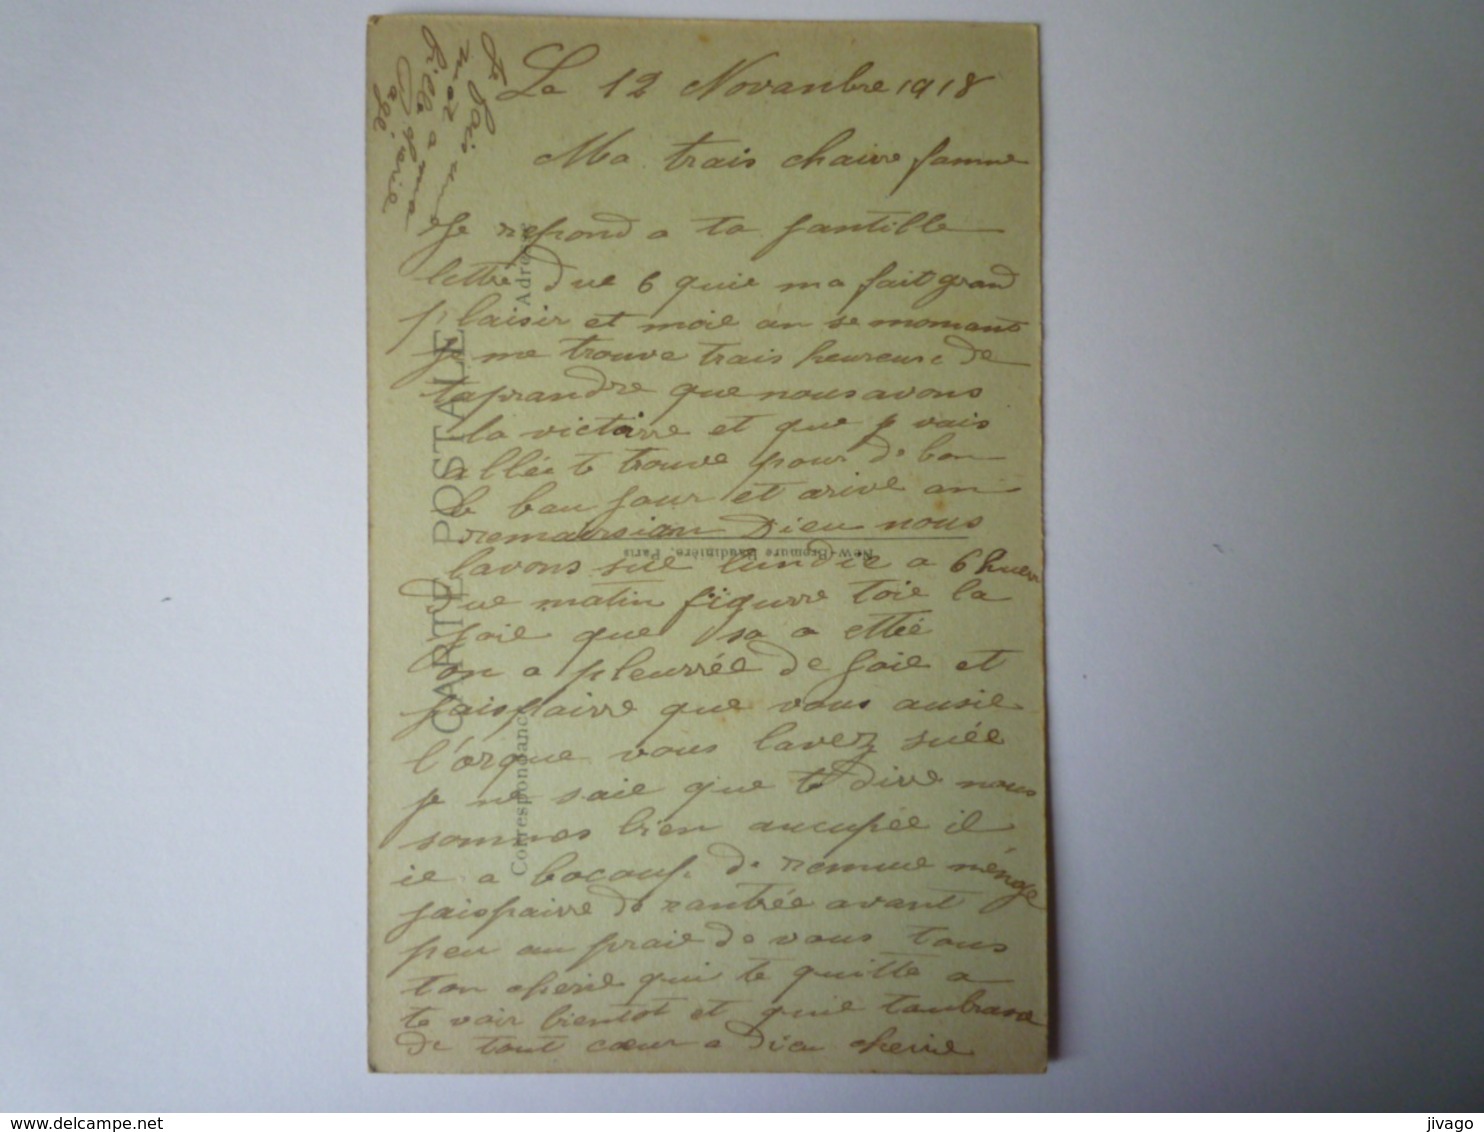 Le 12 Novanbre 1918
Ma trais chaire famme
Je repond a ta jantille
lettre due 6 quie ma fait grand
plaisir et moie an se momant
je me trouve trais heureuse de
taprandre que nous avons
la victoire et que je vais
allée te trouve pour de bon
le bau jour et arive an
remairsian Dieu nous
lavons sue lundie a 6 huer
due matin figurre toie la
joie que sa a ettée
on a pleurrée de joie et
jaispairre que vous ausie
l'orque vous lavez suée
je ne saie que te dire nous
sommes bien aucupée il
ie a bocoup de remue ménage
jaispaire de rantrée avant
peu au praie de vous tous
ton cherie qui te quitte a
te voir bientot et quie tanbrase
de tout cœur a dieu cherie
Je fais une
bille a ma
cherie
CARTE POSTALE
Correspondance
Adresse
New-Bromure Baudinière, Paris
jivago